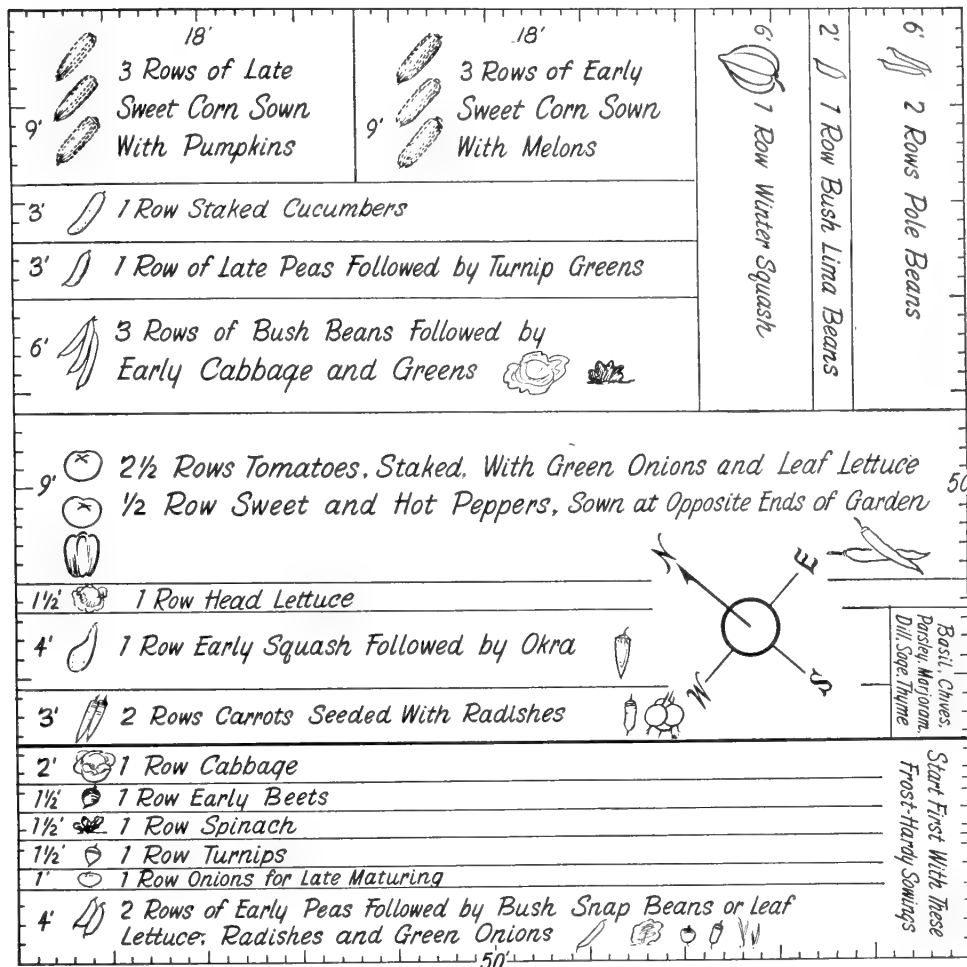 18'
9'
3 Rows of Late
Sweet Corn Sown
With Pumpkins
18'
9'
3 Rows of Early
Sweet Corn Sown
With Melons
6' 1 Row Winter Squash
2' 1 Row Bush Lima Beans
6' 2 Rows Pole Beans
3' 1 Row Staked Cucumbers
3' 1 Row of Late Peas Followed by Turnip Greens
6'
3 Rows of Bush Beans Followed by
Early Cabbage and Greens
9'
2½ Rows Tomatoes, Staked, With Green Onions and Leaf Lettuce
½ Row Sweet and Hot Peppers, Sown at Opposite Ends of Garden
50
N
E
W
S
1½' 1 Row Head Lettuce
4' 1 Row Early Squash Followed by Okra
3' 2 Rows Carrots Seeded With Radishes
Basil, Chives,
Parsley, Marjoram,
Dill, Sage, Thyme
2' 1 Row Cabbage
1½' 1 Row Early Beets
1½' 1 Row Spinach
1½' 1 Row Turnips
1' 1 Row Onions for Late Maturing
4' 2 Rows of Early Peas Followed by Bush Snap Beans or Leaf
Lettuce, Radishes and Green Onions
Start First With These
Frost-Hardy Sowings
50'